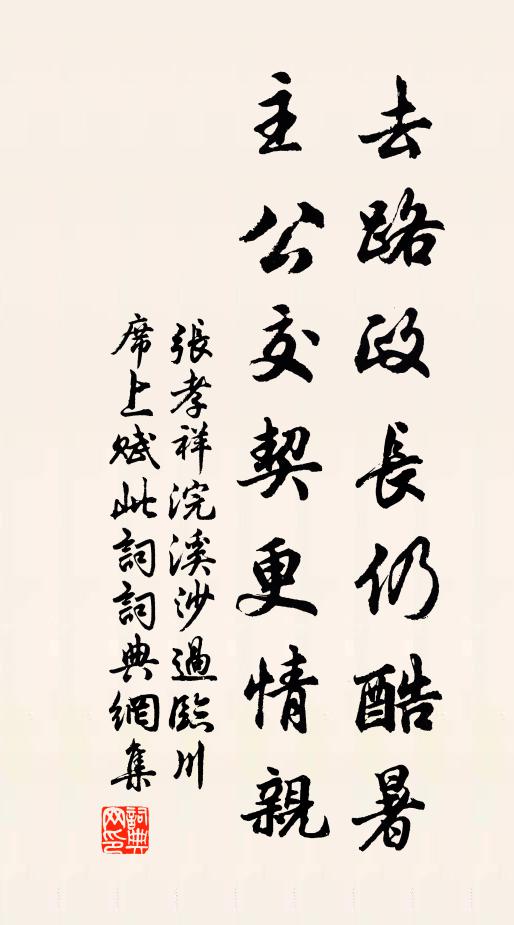 去路政長仍酷暑
主公交契更情親
張孝祥浣溪沙過臨川
席上賦此詞詞典網集
詞典
网印